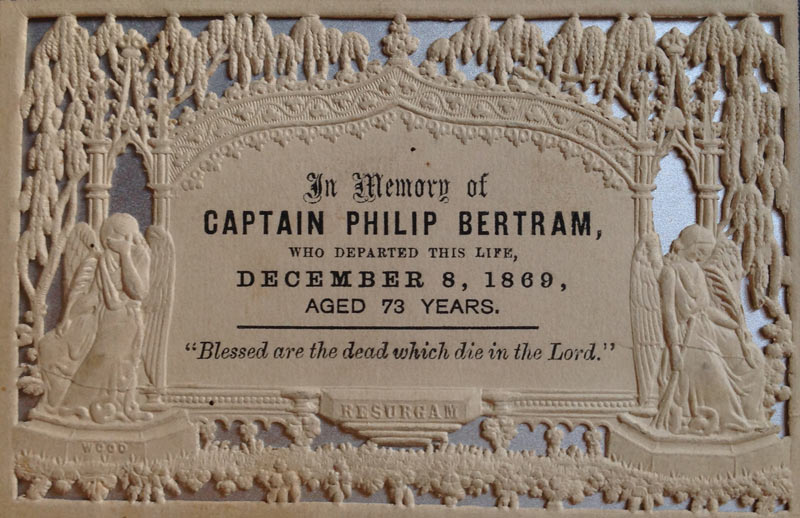 In Memory of
CAPTAIN PHILIP BERTRAM,
WHO DEPARTED THIS LIFE,
DECEMBER 8, 1869,
AGED 73 YEARS.
"Blessed are the dead which die in the Lord."
RESURGAM